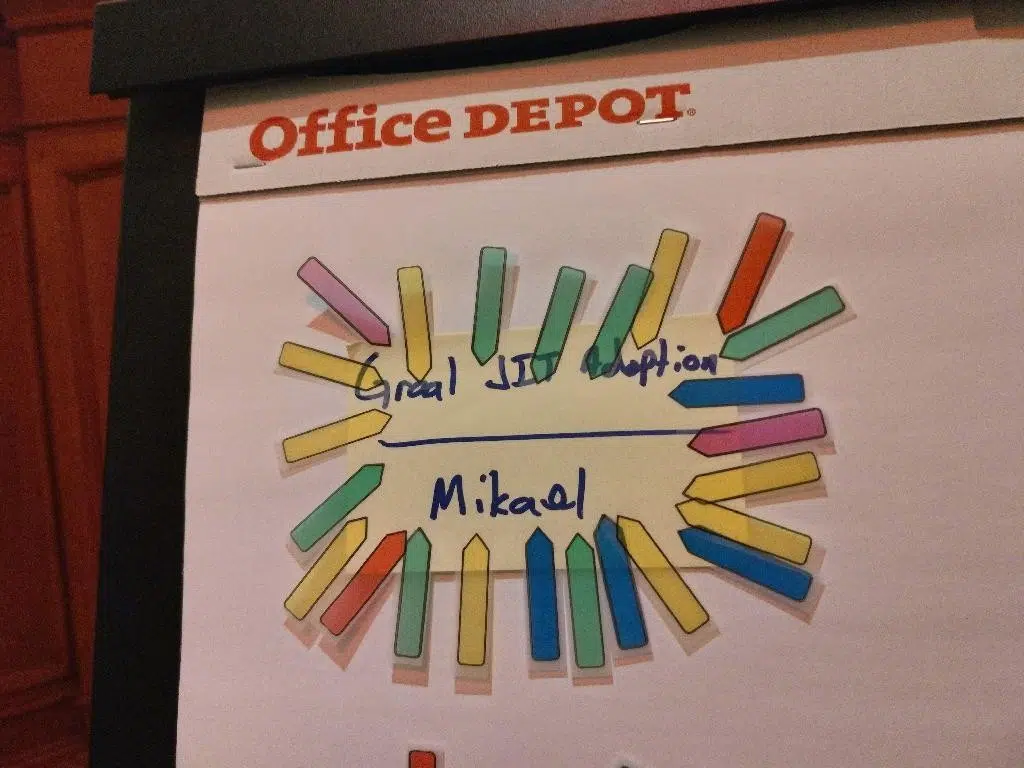 Office DEPOT®
Graal JIT Adoption
Mikael